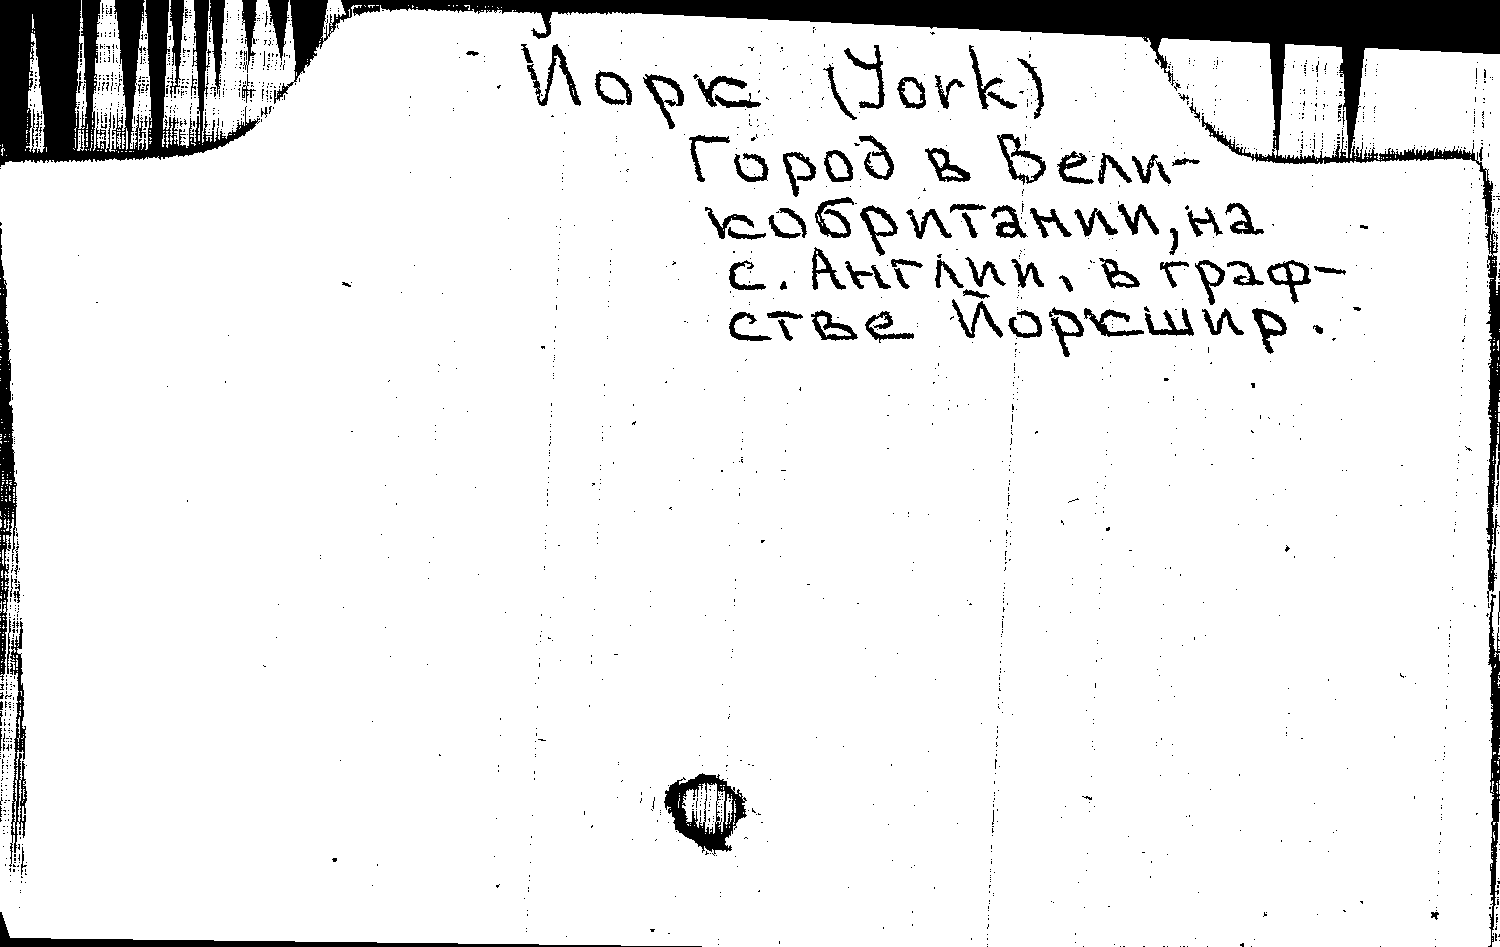 Йорк (York)
Город в Вели-
кобритании, на
с. Англии, в граф-
стве Йоркшир.